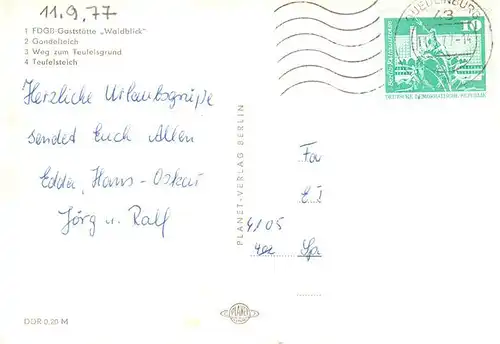 11.9.77
1 FDGB-Gaststätte „Waldblick"
2 Gondelteich
3 Weg zum Teufelsgrund
4 Teufelsteich
Herzliche Urlaubsgrüße
sendet Euch Allen
Edda, Hans-Oskar
Jörg u. Ralf
PLANET-VERLAG BERLIN
QUEDLINBURG
43
10
DEUTSCHE DEMOKRATISCHE REPUBLIK
Fa
4105
402 Sp
PLANET
DDR 0,20 M